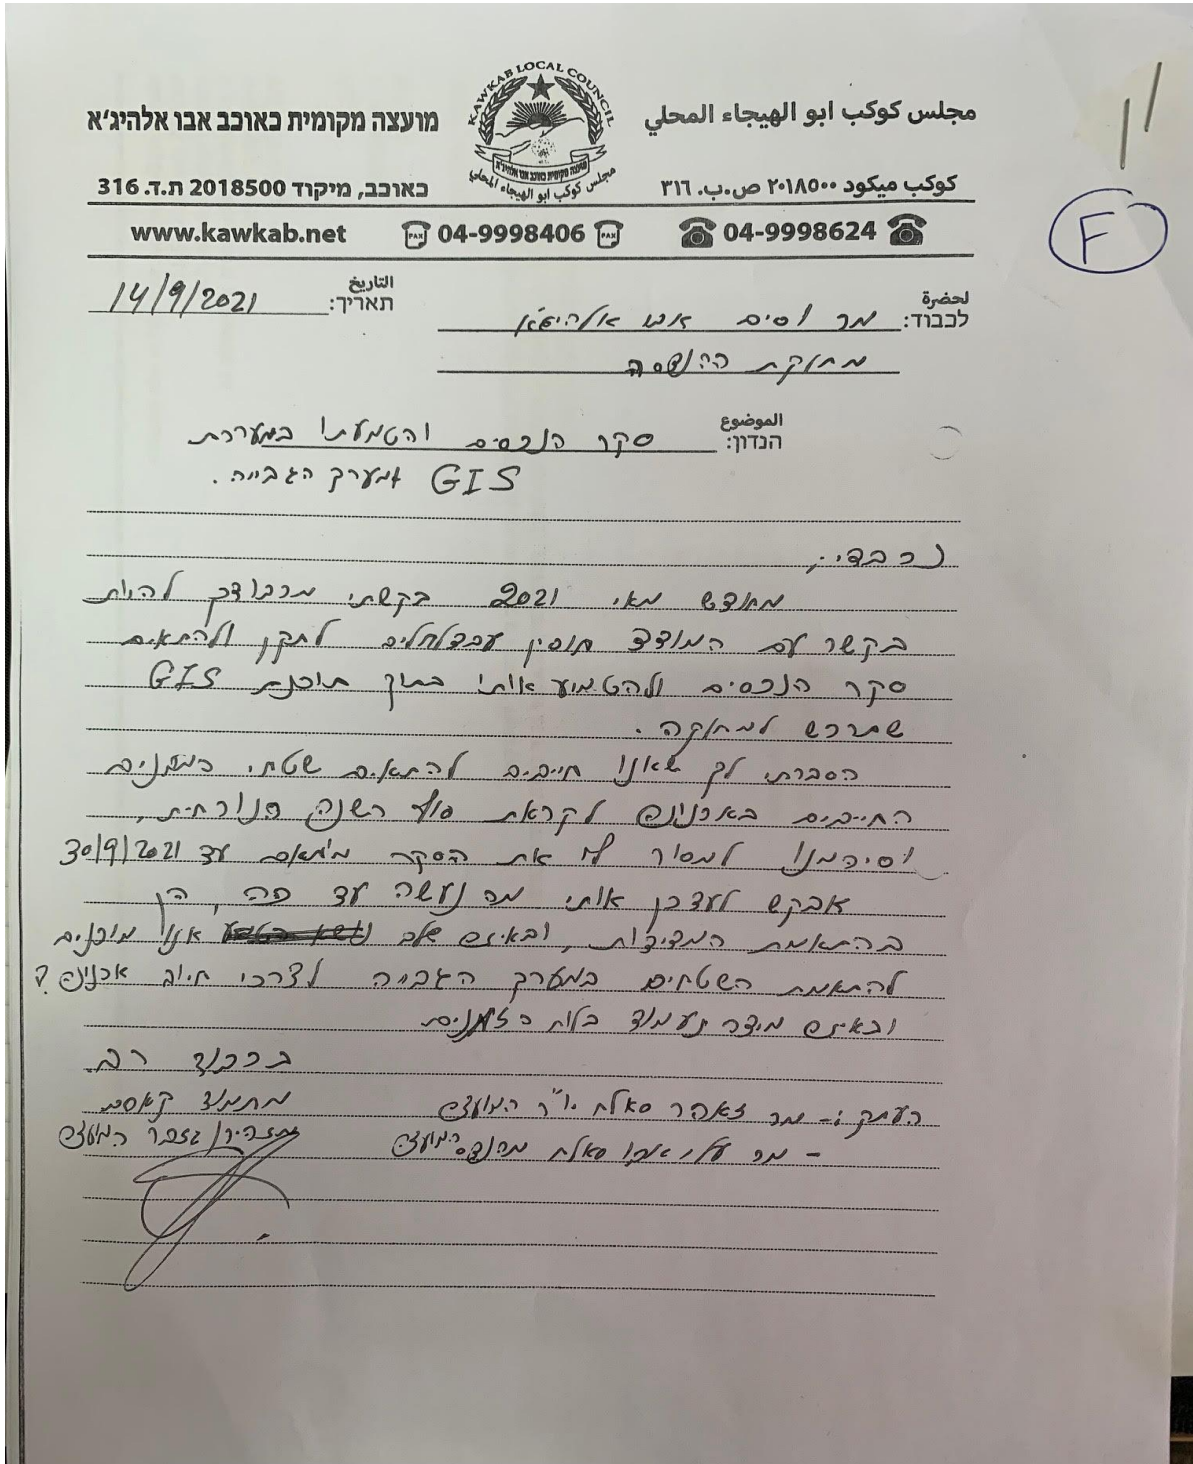 KAWKAB LOCAL COUNCIL
מועצה מקומית כאוכב אבו אלהיג'א
مجلس كوكب ابو الهيجاء المحلي
מועצה מקומית כאוכב אבו אלהיג'א
مجلس كوكب ابو الهيجاء المحلي
כאוכב, מיקוד 2018500 ת.ד. 316
كوكب ميكود ٢٠١٨٥٠٠ ص.ب. ٣١٦
www.kawkab.net FAX 04-9998406 FAX 04-9998624
F
التاريخ
תאריך: 14/9/2021
لحضرة
לכבוד: מר וסים אבו אלהיג'א
מחלקת ההנדסה
الموضوع
הנדון: סקר הנכסים והטמעתו במערכת
GIS ומערך הגבייה.
נכבדי,
מחודש מאי 2021 בקשתי מכבודך להיות
בקשר עם המודד חוסין עבדלחלים לתקן ולהתאים
סקר הנכסים ולהטמיע אותו בתוך תוכנת GIS
שתרכש למחלקה.
הסברתי לך שאנו חייבים להתאים שטחי המבנים
החייבים בארנונה לקראת סוף השנה הנוכחית,
וסיכמנו למסור לי את הסקר מותאם עד 30/9/2021
אבקש לעדכן אותי מה נעשה עד פה, הן
בהתאמת המדידות, ובאיזה שלב אנו מוכנים
להתאמת השטחים במערך הגבייה לצרכי חיוב ארנונה?
ובאיזה מידה נעמוד בלוח הזמנים
בכבוד רב
העתק:- מר זאהר סאלח יו"ר המועצה
מחמוד קאסם
- מר עלי סאלח מהנדס המועצה
גזבר המועצה